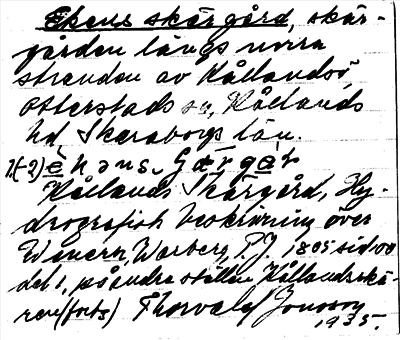 Ekens skärgård, skär-
gården längs norra
stranden av Kållandsö,
Otterstads sn, Kållands
hd, Skaraborgs län.
Kållands Skärgård, Hy-
drografisk beskrivning över
Wenern, Warberg, P.J. 1805 sid
del 1, på andra ställen Kållandsskä-
ren (forts) Thorvald Jonsson
1935.